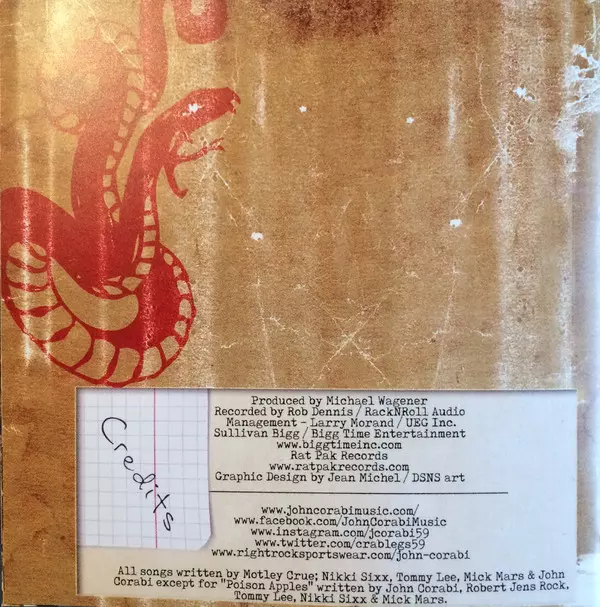 Credits
Produced by Michael Wagener
Recorded by Rob Dennis / RackNRoll Audio
Management - Larry Morand / UEG Inc.
Sullivan Bigg / Bigg Time Entertainment
www.biggtimeinc.com
Rat Pak Records
www.ratpakrecords.com
Graphic Design by Jean Michel / DSNS art
www.johncorabimusic.com/
www.facebook.com/JohnCorabiMusic
www.instagram.com/jcorabi59
www.twitter.com/crablegs59
www.rightrocksportswear.com/john-corabi
All songs written by Motley Crue; Nikki Sixx, Tommy Lee, Mick Mars & John
Corabi except for "Poison Apples" written by John Corabi, Robert Jens Rock.
Tommy Lee, Nikki Sixx & Mick Mars.